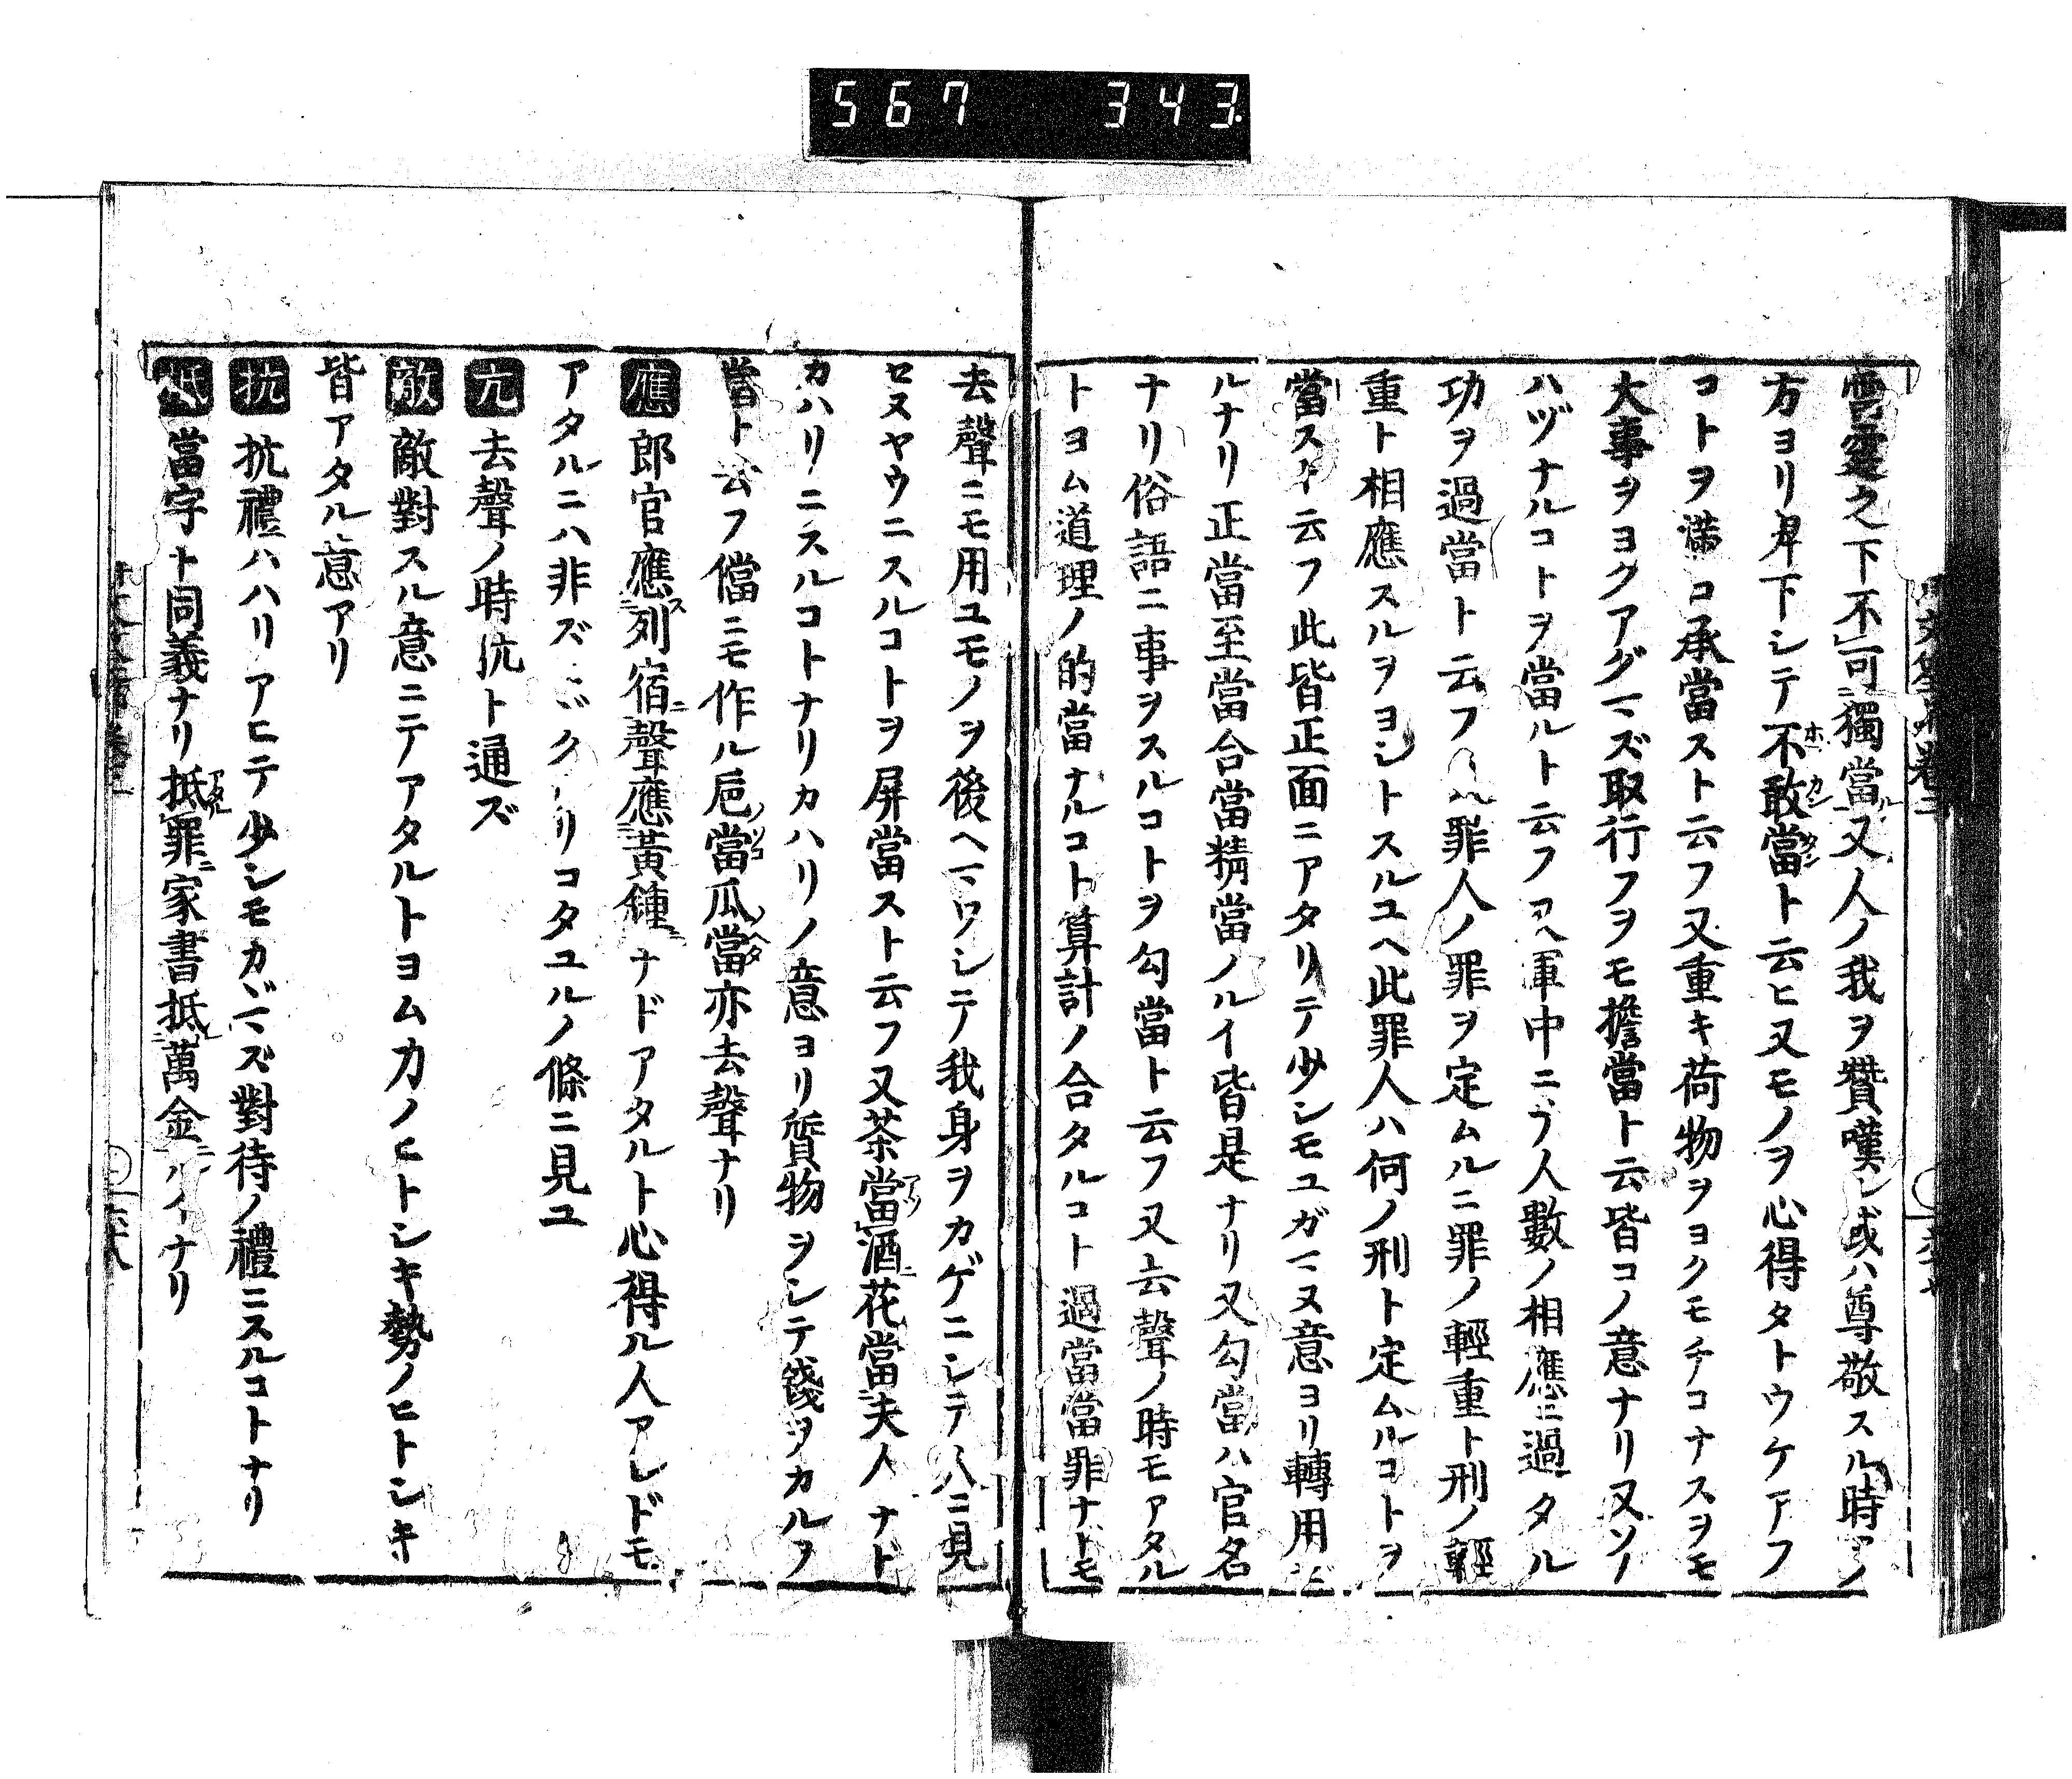 567 343
雪霆之下不可獨當又人ノ我ヲ贊嘆シ或ハ尊敬スル時アノ
方ヨリ卑下シテ不敢當ト云ヒ又モノヲ心得タトウケアフ
コトヲ 承當スト云フ又重キ荷物ヲヨクモチコナスヲモ
大事ヲヨクアグマズ取行フヲモ擔當ト云皆コノ意ナリ又ソノ
ハヅナルコトヲ當ルト云フ 軍中ニテ人數ノ相應ニ過タル
功ヲ過當ト云フ 罪人ノ罪ヲ定ムルニ罪ノ輕重ト刑ノ輕
重ト相應スルヲヨシトスルユヘ此罪人ハ何ノ刑ト定ムルコトヲ
當スト云フ此皆正面ニアタリテ少シモユガマヌ意ヨリ轉用
ルナリ正當至當合當精當ノルイ皆是ナリ又勾當ハ官名
ナリ俗語ニ事ヲスルコトヲ勾當ト云フ又去聲ノ時モアタル
トヨム道理ノ的當ナルコト算計ノ合タルコト過當當罪ナトモ
去聲ニモ用ユモノヲ後ヘマワシテ我身ヲカゲニシテ人ニ見
セヌヤウニスルコトヲ屏當スト云フ又茶當酒花當夫人ナド
カハリニスルコトナリカハリノ意ヨリ質物ヲシテ錢ヲカルヲ
當ト云フ儅ニモ作ル巵當瓜當亦去聲ナリ
應 郎官應列宿聲應黃鍾ナドアタルト心得ル人アレドモ
アタルニハ非ズ コタユルノ條ニ見ユ
亢 去聲ノ時抗ト通ズ
敵 敵對スル意ニテアタルトヨム力ノヒトシキ勢ノヒトシキ
皆アタル意アリ
抗 抗禮ハハリアヒテ少シモカヾマズ對待ノ禮ニスルコトナリ
抵 當字ト同義ナリ抵罪家書抵萬金ルイナリ